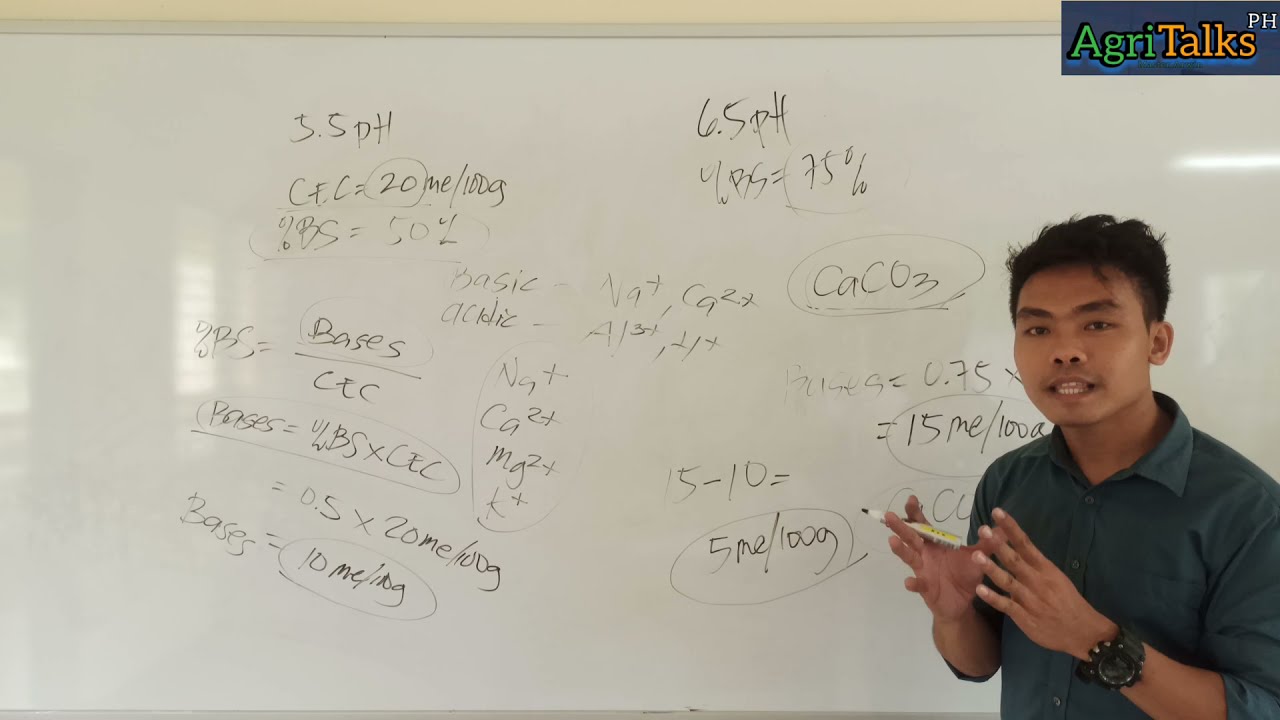 AgriTalks PH
5.5 pH
CEC = 20 me/100g
%BS = 50%
6.5 pH
%BS = 75%
Basic - Na+, Ca2+
acidic - Al3+, H+
CaCO3
%BS = Bases
CEC
Bases = %BS x CEC
= 0.5 x 20me/100g
Bases = 10 me/100g
Na+
Ca2+
Mg2+
K+
Bases = 0.75 x
= 15me/100g
15-10 =
5me/100g